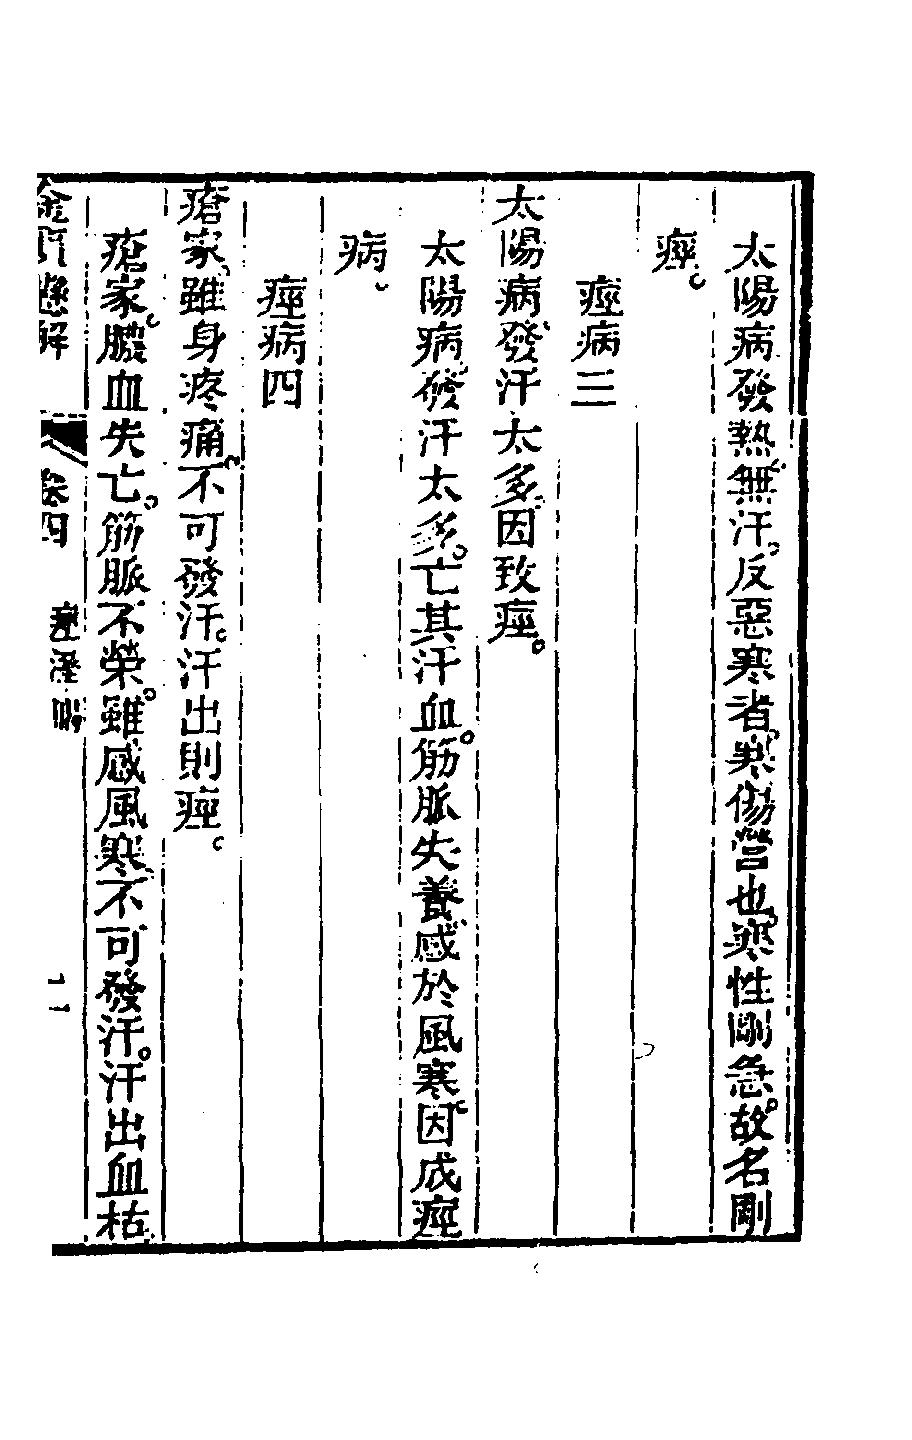 太陽病發熱無汗。反惡寒者。寒傷營也。寒性剛急。故名剛
痙。
痙病三
太陽病、發汗太多、因致痙。
太陽病、發汗太多。亡其汗血。筋脈失養、感於風寒。因成痙
病。
痙病四
瘡家、雖身疼痛。不可發汗。汗出則痙。
瘡家。膿血失亡。筋脈不榮。雖感風寒、不可發汗。汗出血枯
金匱懸解
卷四
痙溼暍
十一